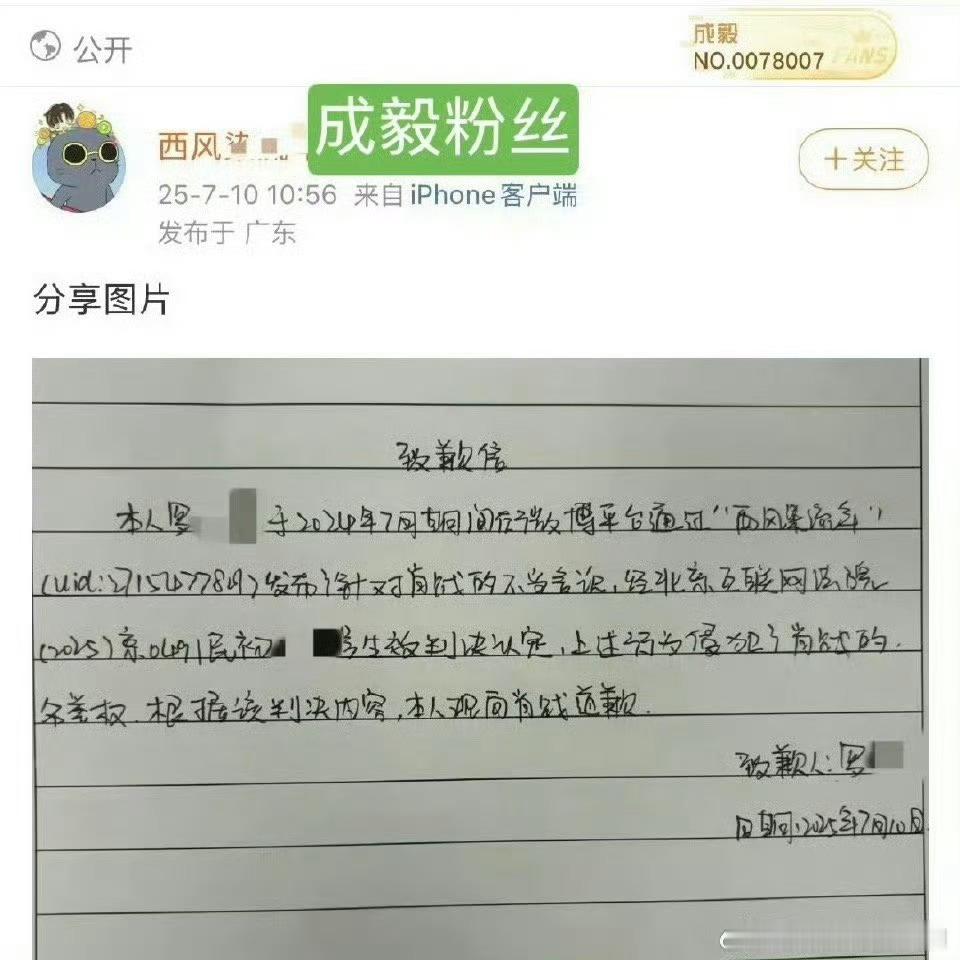 公开
成毅
NO.0078007
FANS
西风
成毅粉丝
+关注
25-7-10 10:56 来自 iPhone客户端
发布于 广东
分享图片
致歉信
本人罗 于2024年7月期间在微博平台通过“西风染流年”
(uid:2715477849)发布了针对肖战的不当言论,经北京互联网法院
(2025)京0491民初 号生效判决认定,上述行为侵犯了肖战的
名誉权.根据该判决内容,本人现向肖战道歉.
致歉人:罗
日期:2025年7月10日.